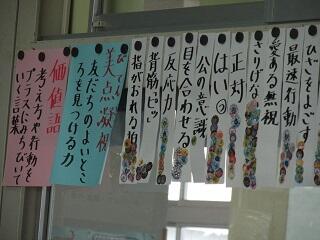 最速行動
愛ある無視
さりげな
正対
公の意識
目を合わせる
反応力
背筋ピッ
指がおれる拍
美点凝視
友だちのよいとこ
ろを見つける力
価値語
考え方や行動を
プラスにみちびいて
いく言葉